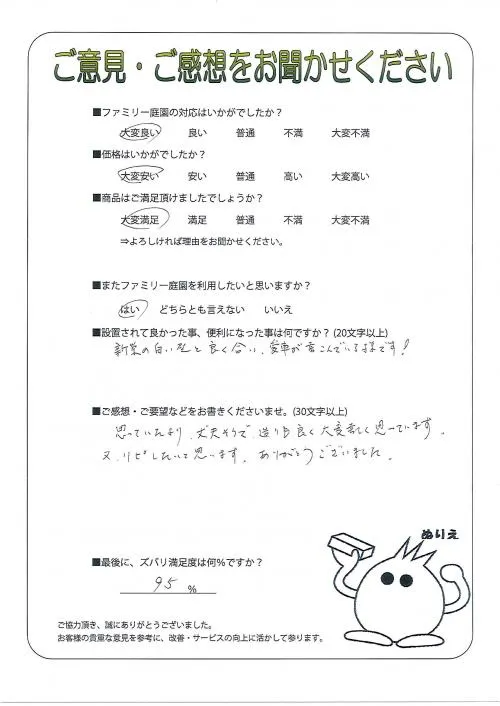 ご意見・ご感想をお聞かせください
■ファミリー庭園の対応はいかがでしたか？
大変良い 良い 普通 不満 大変不満
■価格はいかがでしたか？
大変安い 安い 普通 高い 大変高い
■商品はご満足頂けましたでしょうか？
大変満足 満足 普通 不満 大変不満
⇒よろしければ理由をお聞かせください。
■またファミリー庭園を利用したいと思いますか？
はい どちらとも言えない いいえ
■設置されて良かった事、便利になった事は何ですか？(20文字以上)
新築の白い家と良く合い、愛車が喜こんでいる様です！
■ご感想・ご要望などをお書きくださいませ。(30文字以上)
思っていたより、丈夫そうで、造りも良く大変 思っています。
又、リピしたいと思います。ありがとうございました。
ぬりえ
■最後に、ズバリ満足度は何%ですか？
95 %
ご協力頂き、誠にありがとうございました。
お客様の貴重な意見を参考に、改善・サービスの向上に活かして参ります。